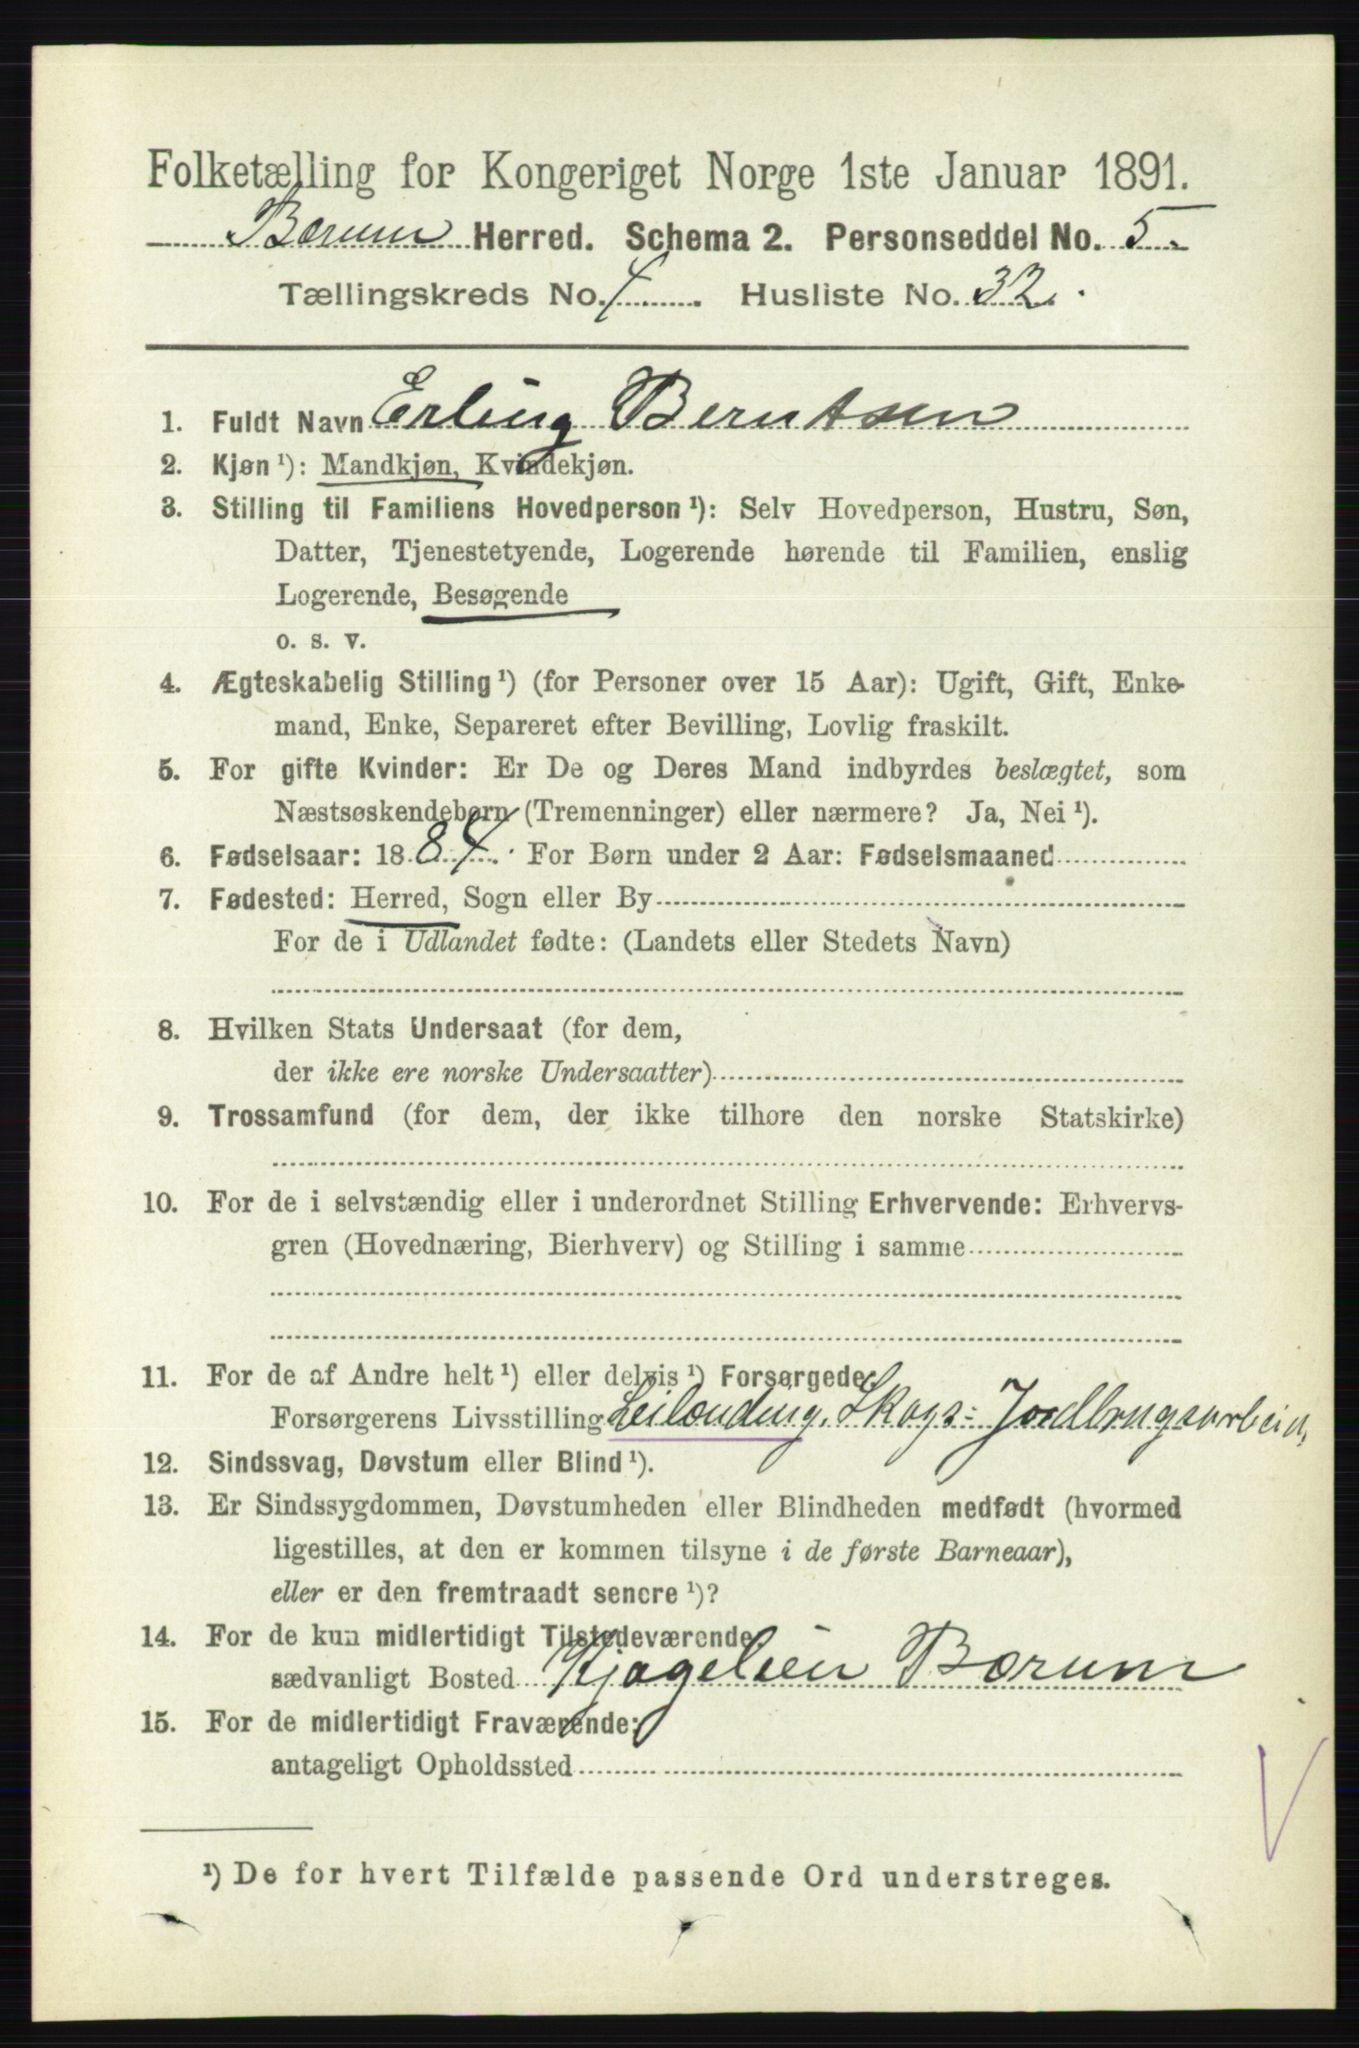 Folketælling for Kongeriget Norge 1ste Januar 1891.
Bærum Herred. Schema 2. Personseddel No. 5.
Tællingskreds No. 4. Husliste No. 32.
1. Fuldt Navn Erling Berntsen
2. Kjøn ¹): Mandkjøn, Kvindekjøn.
3. Stilling til Familiens Hovedperson ¹): Selv Hovedperson, Hustru, Søn,
Datter, Tjenestetyende, Logerende hørende til Familien, enslig
Logerende, Besøgende
o. s. v.
4. Ægteskabelig Stilling ¹) (for Personer over 15 Aar): Ugift, Gift, Enke-
mand, Enke, Separeret efter Bevilling, Lovlig fraskilt.
5. For gifte Kvinder: Er De og Deres Mand indbyrdes beslægtet, som
Næstsøskendebørn (Tremenninger) eller nærmere? Ja, Nei ¹).
6. Fødselsaar: 1884. For Børn under 2 Aar: Fødselsmaaned
7. Fødested: Herred, Sogn eller By
For de i Udlandet fødte: (Landets eller Stedets Navn)
8. Hvilken Stats Undersaat (for dem,
der ikke ere norske Undersaatter)
9. Trossamfund (for dem, der ikke tilhøre den norske Statskirke)
10. For de i selvstændig eller i underordnet Stilling Erhvervende: Erhvervs-
gren (Hovednæring, Bierhverv) og Stilling i samme
11. For de af Andre helt ¹) eller delvis ¹) Forsørgede
Forsørgerens Livsstilling Leilænding, Skogs- Jordbrugsarbeid,
12. Sindssvag, Døvstum eller Blind ¹).
13. Er Sindssygdommen, Døvstumheden eller Blindheden medfødt (hvormed
ligestilles, at den er kommen tilsyne i de første Barneaar),
eller er den fremtraadt senere ¹)?
14. For de kun midlertidigt Tilstedeværende
sædvanligt Bosted Bærum
15. For de midlertidigt Fraværende:
antageligt Opholdssted
¹) De for hvert Tilfælde passende Ord understreges.